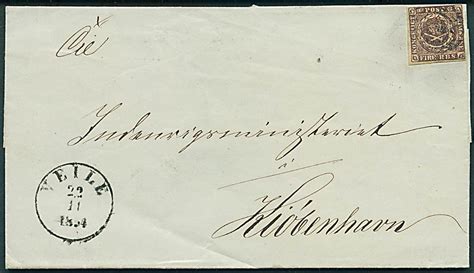 Die
KONGELIGT POST FRIMÆRKE
FIRE R.B.S.
Indenrigsministeriet
i
Kiöbenhavn
VEILE
22
11
1854